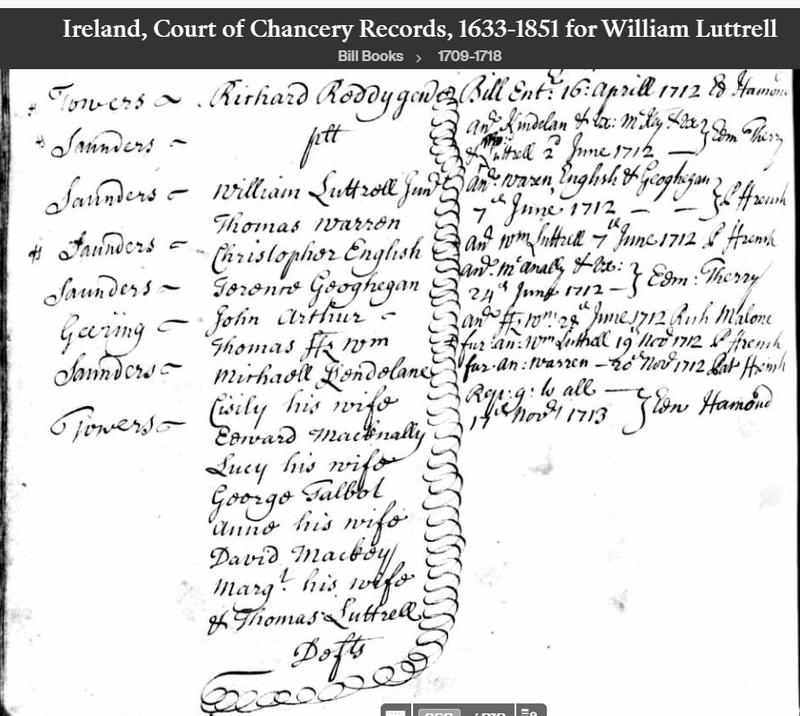 Ireland, Court of Chancery Records, 1633-1851 for William Luttrell
Bill Books › 1709-1718
Towers
Saunders
Saunders
Saunders
Saunders
Geering
Saunders
Towers
Richard Reddy gent
plt
William Luttrell Junr
Thomas Warren
Christopher English
Terence Geoghegan
John Arthur
Thomas ffz wm
Michaell Kendelane
Cisily his wife
Edward Macknally
Lucy his wife
George Talbot
Anne his wife
David Mackey
Margt. his wife
& Thomas Luttrell
Defts
Bill Ent: 16: Aprill 1712 Ed Hamond
anr. Kindelan & Ux: McKey & Ux Edm Therry
& Luttrell 2d June 1712
anr: Waren English & Geoghegan
7th June 1712 P ffrench
anr Wm Luttrell 7th June 1712 P ffrench
anr. McAnally & Ux: Edm: Therry
24th June 1712
anr ffz Wm: 28th June 1712 Rich Malone
fur: an: Wm Luttrell 19 Novr 1712 P ffrench
fur: an: Warren 20th Novr 1712 Pat ffrench
Rep: g: to all
17th Novr 1713 Edw Hamond